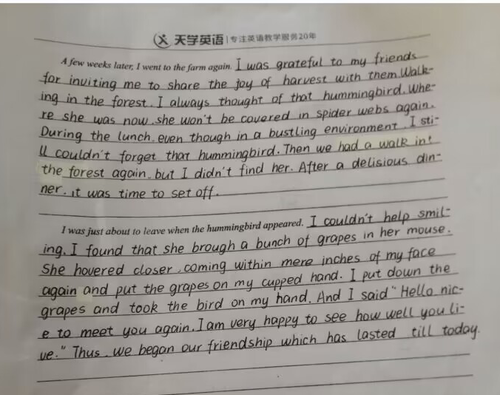 天学英语 | 专注英语教学服务20年
A few weeks later, I went to the farm again. I was grateful to my friends
for inviting me to share the joy of harvest with them. Walk-
ing in the forest, I always thought of that hummingbird. Whe-
re she was now she won't be covered in spider webs again.
During the lunch, even though in a bustling environment, I sti-
ll couldn't forget that hummingbird. Then we had a walk int
the forest again, but I didn't find her. After a delisious din-
ner, it was time to set off.
I was just about to leave when the hummingbird appeared. I couldn't help smil-
ing. I found that she brough a bunch of grapes in her mouse.
She hovered closer, coming within mere inches of my face
again and put the grapes on my cupped hand. I put down the
grapes and took the bird on my hand. And I said "Hello nic-
e to meet you again. I am very happy to see how well you li-
ve." Thus, we began our friendship which has lasted till today.